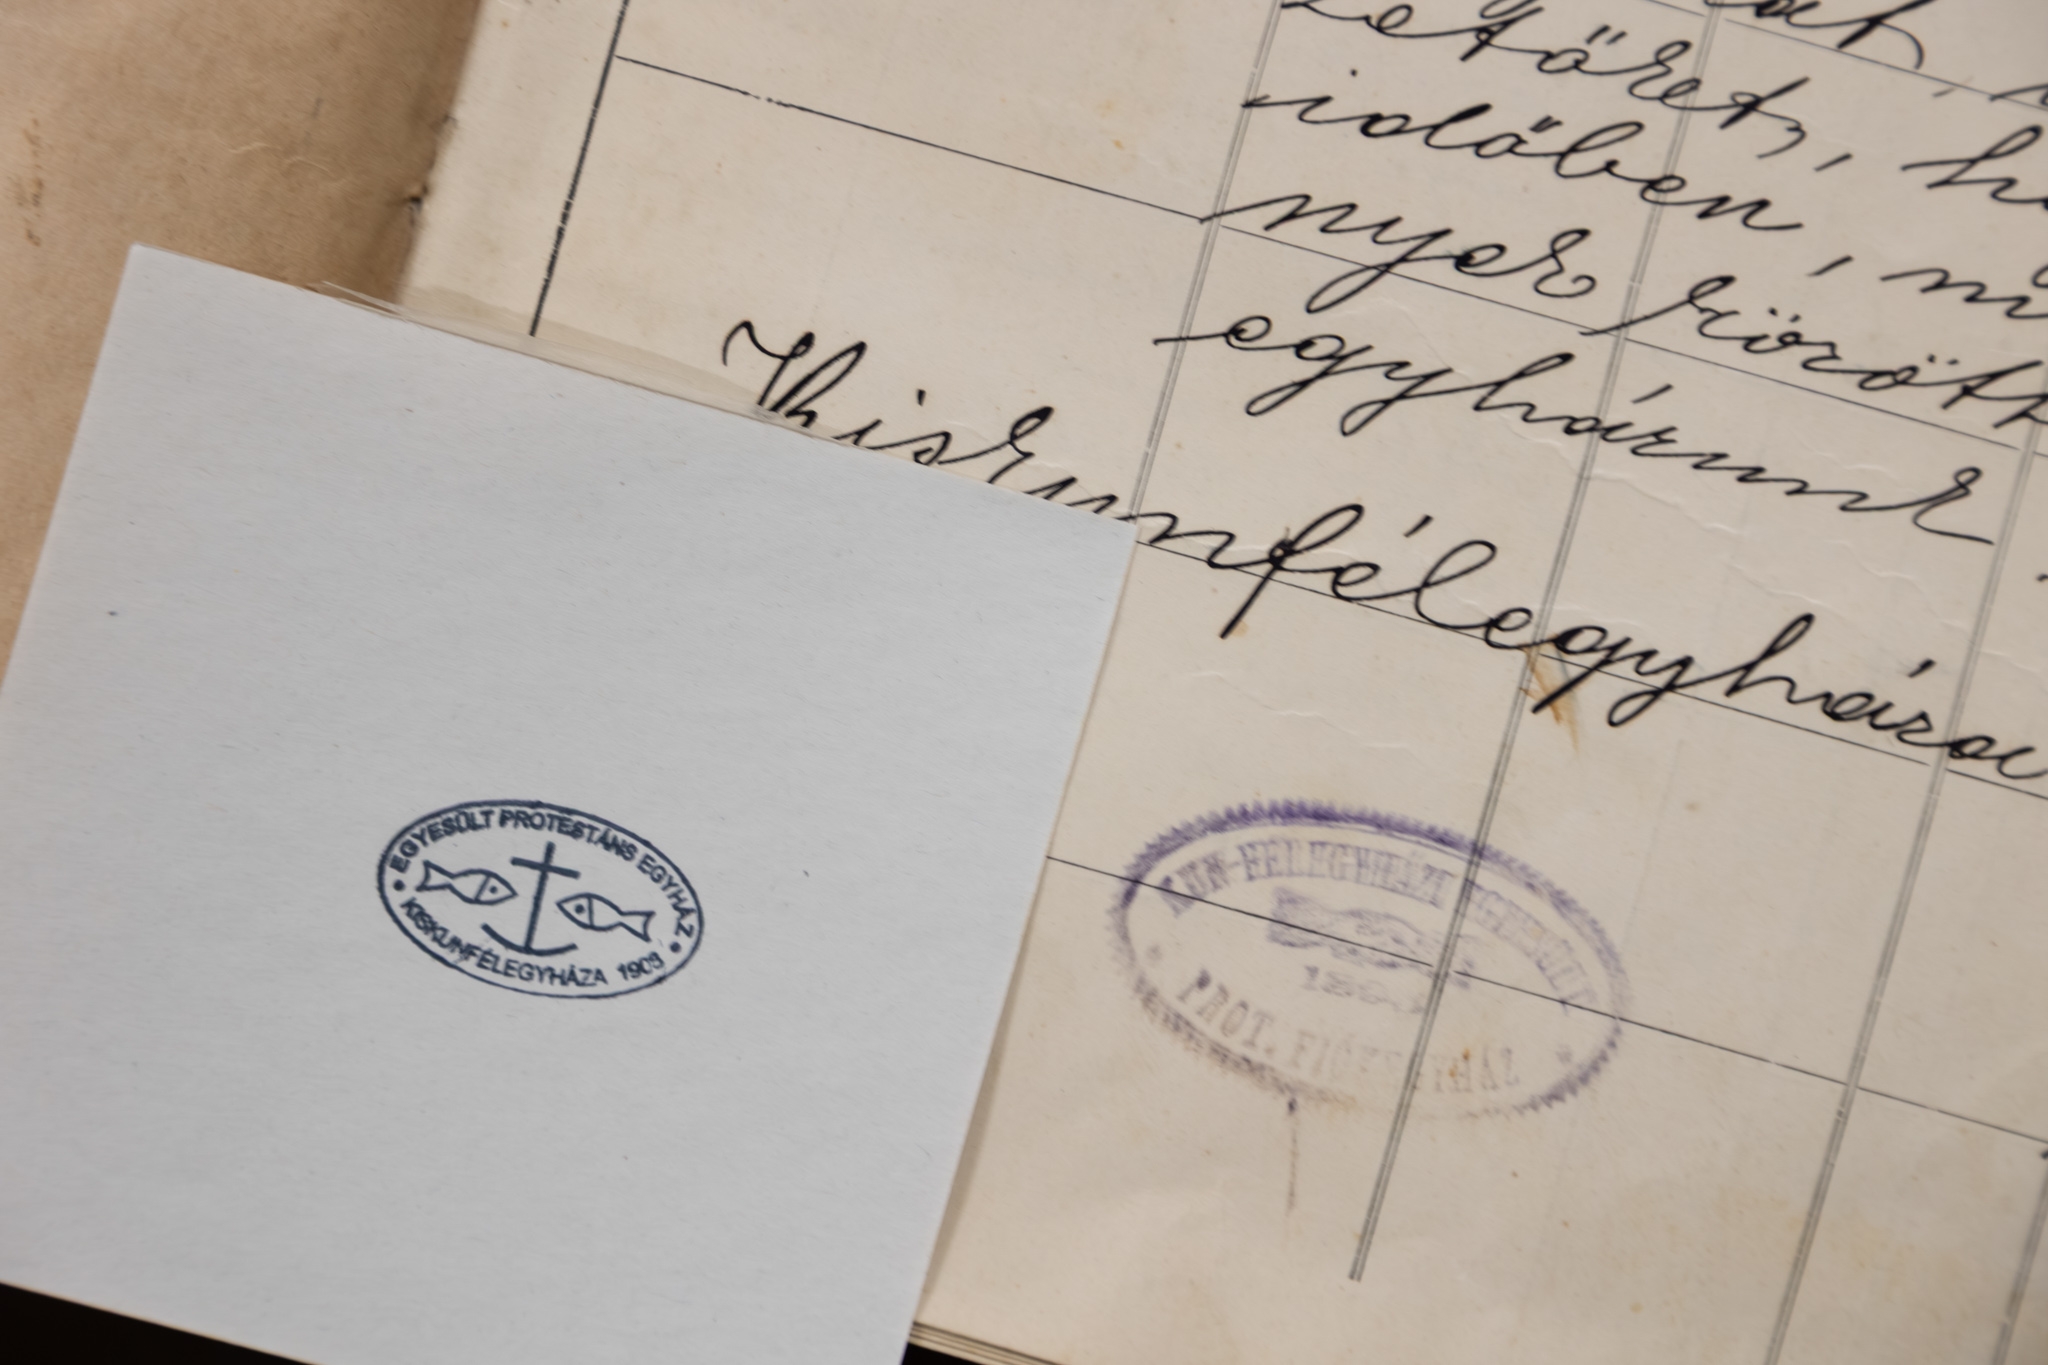 zetőret, h
időben, m
nyek között
egyházunk
Kiskunfélegyháza
EGYESÜLT PROTESTÁNS EGYHÁZ
KISKUNFÉLEGYHÁZA 1903
KUN-FÉLEGYHÁZI
PROT. FIÓKEGYHÁZ